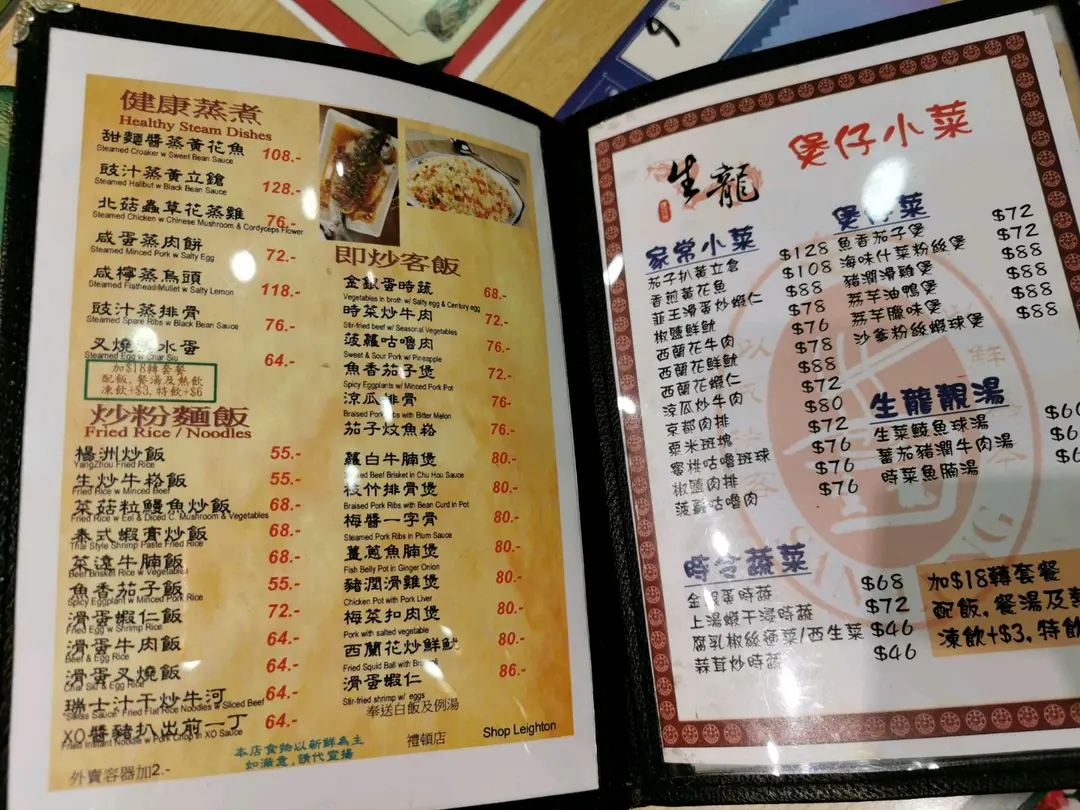 健康蒸煮
Healthy Steam Dishes
甜麵醬蒸黃花魚 108.-
Steamed Croaker w Sweet Bean Sauce
豉汁蒸黃立鎗 128.-
Steamed Halibut w Black Bean Sauce
北菇蟲草花蒸雞 76.-
Steamed Chicken w Chinese Mushroom & Cordyceps Flower
咸蛋蒸肉餅 72.-
Steamed Minced Pork w Salty Egg
咸檸蒸烏頭 118.-
Steamed Flathead Mullet w Salty Lemon
豉汁蒸排骨 76.-
Steamed Spare Ribs w Black Bean Sauce
叉燒 水蛋 64.-
Steamed Egg w Char Siu
加$18轉套餐
配飯,餐湯及熱飲
凍飲+$3,特飲+$6
炒粉麵飯
Fried Rice / Noodles
楊洲炒飯 55.-
YangZhou Fried Rice
生炒牛崧飯 55.-
Fried Rice w Minced Beef
菜菇粒鰻魚炒飯 68.-
Fried Rice w Eel & Diced C. Mushroom & Vegetables
泰式蝦膏炒飯 68.-
Thai Style Shrimp Paste Fried Rice
菜遠牛腩飯 68.-
Beef Brisket Rice w Vegetables
魚香茄子飯 55.-
Spicy Eggplant w Minced Pork Rice
滑蛋蝦仁飯 72.-
Fried Egg w Shrimp Rice
滑蛋牛肉飯 64.-
Beef & Egg Rice
滑蛋叉燒飯 64.-
Char Siu & Egg Rice
瑞士汁干炒牛河 64.-
"Swiss Sauce" Fried Flat Rice Noodles w Sliced Beef
XO醬豬扒出前一丁 64.-
Fried Instant Noodle w Pork Chop in XO Sauce
外賣容器加2.-
本店食物以新鮮為主
如滿意,請代宣揚
即炒客飯
金銀蛋時蔬 68.-
Vegetables in broth w/ Salty egg & Century egg
時菜炒牛肉 72.-
Stir-fried beef w/ Seasonal Vegetables
菠蘿咕嚕肉 76.-
Sweet & Sour Pork w/ Pineapple
魚香茄子煲 72.-
Spicy Eggplants w/ Minced Pork Pot
涼瓜排骨 76.-
Braised Pork Ribs with Bitter Melon
茄子炆魚崧 76.-
蘿白牛腩煲 80.-
Beef Brisket in Chu Hou Sauce
枝竹排骨煲 80.-
Braised Pork Ribs with Bean Curd in Pot
梅醬一字骨 80.-
Steamed Pork Ribs in Plum Sauce
薑蔥魚腩煲 80.-
Fish Belly Pot in Ginger Onion
豬潤滑雞煲 80.-
Chicken Pot with Pork Liver
梅菜扣肉煲 80.-
Pork with salted vegetable
西蘭花炒鮮魷 80.-
Fried Squid Ball with
滑蛋蝦仁 86.-
Stir-fried shrimp w/ eggs
奉送白飯及例湯
禮頓店
Shop Leighton
9
生龍
煲仔小菜
家常小菜
茄子扒黃立倉 $128
香煎黃花魚 $108
韮王滑蛋炒蝦仁 $88
椒鹽鮮魷 $78
西蘭花牛肉 $76
西蘭花鮮魷 $78
西蘭花蝦仁 $88
涼瓜炒牛肉 $72
京都肉排 $80
粟米班塊 $72
蜜桃咕嚕班球 $76
椒鹽肉排 $76
菠蘿咕嚕肉 $76
煲仔菜
魚香茄子煲 $72
海味什菜粉絲煲 $72
豬潤滑雞煲 $88
荔芋油鴨煲 $88
荔芋臘味煲 $88
沙爹粉絲蝦球煲 $88
生龍靚湯
生菜鯪魚球湯
蕃茄豬潤牛肉湯
時菜魚腩湯
時令蔬菜
金銀蛋時蔬 $68
上湯蝦干浸時蔬 $72
腐乳椒絲通菜/西生菜 $46
蒜茸炒時蔬 $46
加$18轉套餐
配飯,餐湯及熱
凍飲+$3,特飲